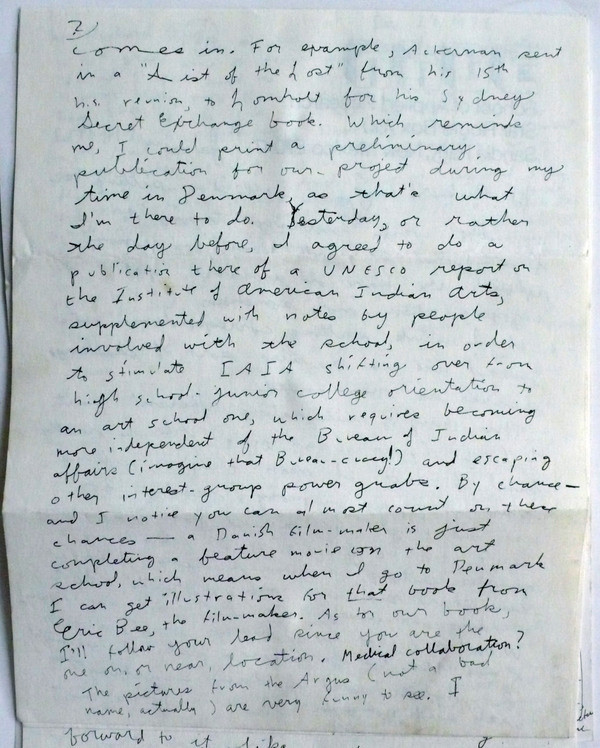 2)
comes in. For example, Ackerman sent
in a "List of the Lost" from his 15th
h.s. reunion, to Lomholt for his Sydney
Secret Exchange book. Which reminds
me, I could print a preliminary
publication for our project during my
time in Denmark, as that's what
I'm there to do. Yesterday, or rather
the day before, I agreed to do a
publication there of a UNESCO report on
the Institute of American Indian Arts,
supplemented with notes by people
involved with the school, in order
to stimulate IAIA shifting over from
high school-junior college orientation to
an art school one, which requires becoming
more independent of the Bureau of Indian
affairs (imagine that Bureau-cracy!) and escaping
other interest-group power grabs. By chance—
and I notice you can almost count on these
chances — a Danish film-maker is just
completing a feature movie on the art
school, which means when I go to Denmark
I can get illustrations for that book from
Eric Bee, the film-maker. As for our book,
I'll follow your lead since you are the
one on, or near, location. Medical collaboration?
The pictures from the Argus (not a bad
name, actually) are very funny to see. I
forward to it